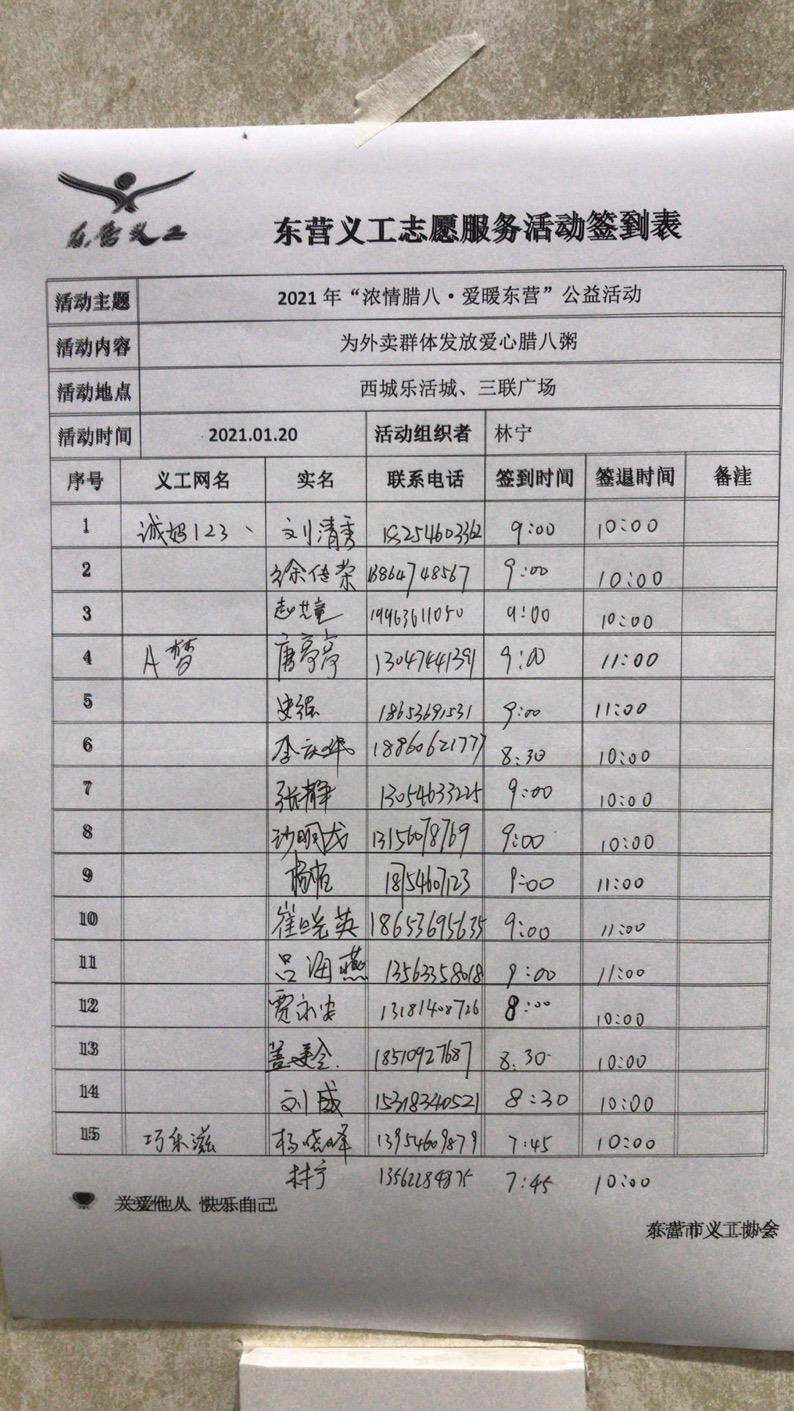 东营义工
东营义工志愿服务活动签到表
活动主题 2021年“浓情腊八·爱暖东营”公益活动
活动内容 为外卖群体发放爱心腊八粥
活动地点 西城乐活城、三联广场
活动时间 2021.01.20 活动组织者 林宁
序号 义工网名 实名 联系电话 签到时间 签退时间 备注
1 诚妈123、 刘清秀 18254603362 9:00 10:00
2 徐传荣 13864748567 9:00 10:00
3 赵童 19963611050 9:00 10:00
4 A梦 唐亭亭 13047441391 9:00 11:00
5 18653691531 9:00 11:00
6 李 18860621777 8:30 10:00
7 张静 13054633225 9:00 10:00
8 13156078769 9:00 10:00
9 杨 18754607123 9:00 11:00
10 崔晓英 18653695635 9:00 11:00
11 吕海燕 13563358018 9:00 11:00
12 贾永安 13181408726 8:00 10:00
13 18510927687 8:30 10:00
14 刘威 15318340521 8:30 10:00
15 巧乐滋 杨晓峰 13954609879 7:45 10:00
林宁 13562284875 7:45 10:00
关爱他人 快乐自己
东营市义工协会